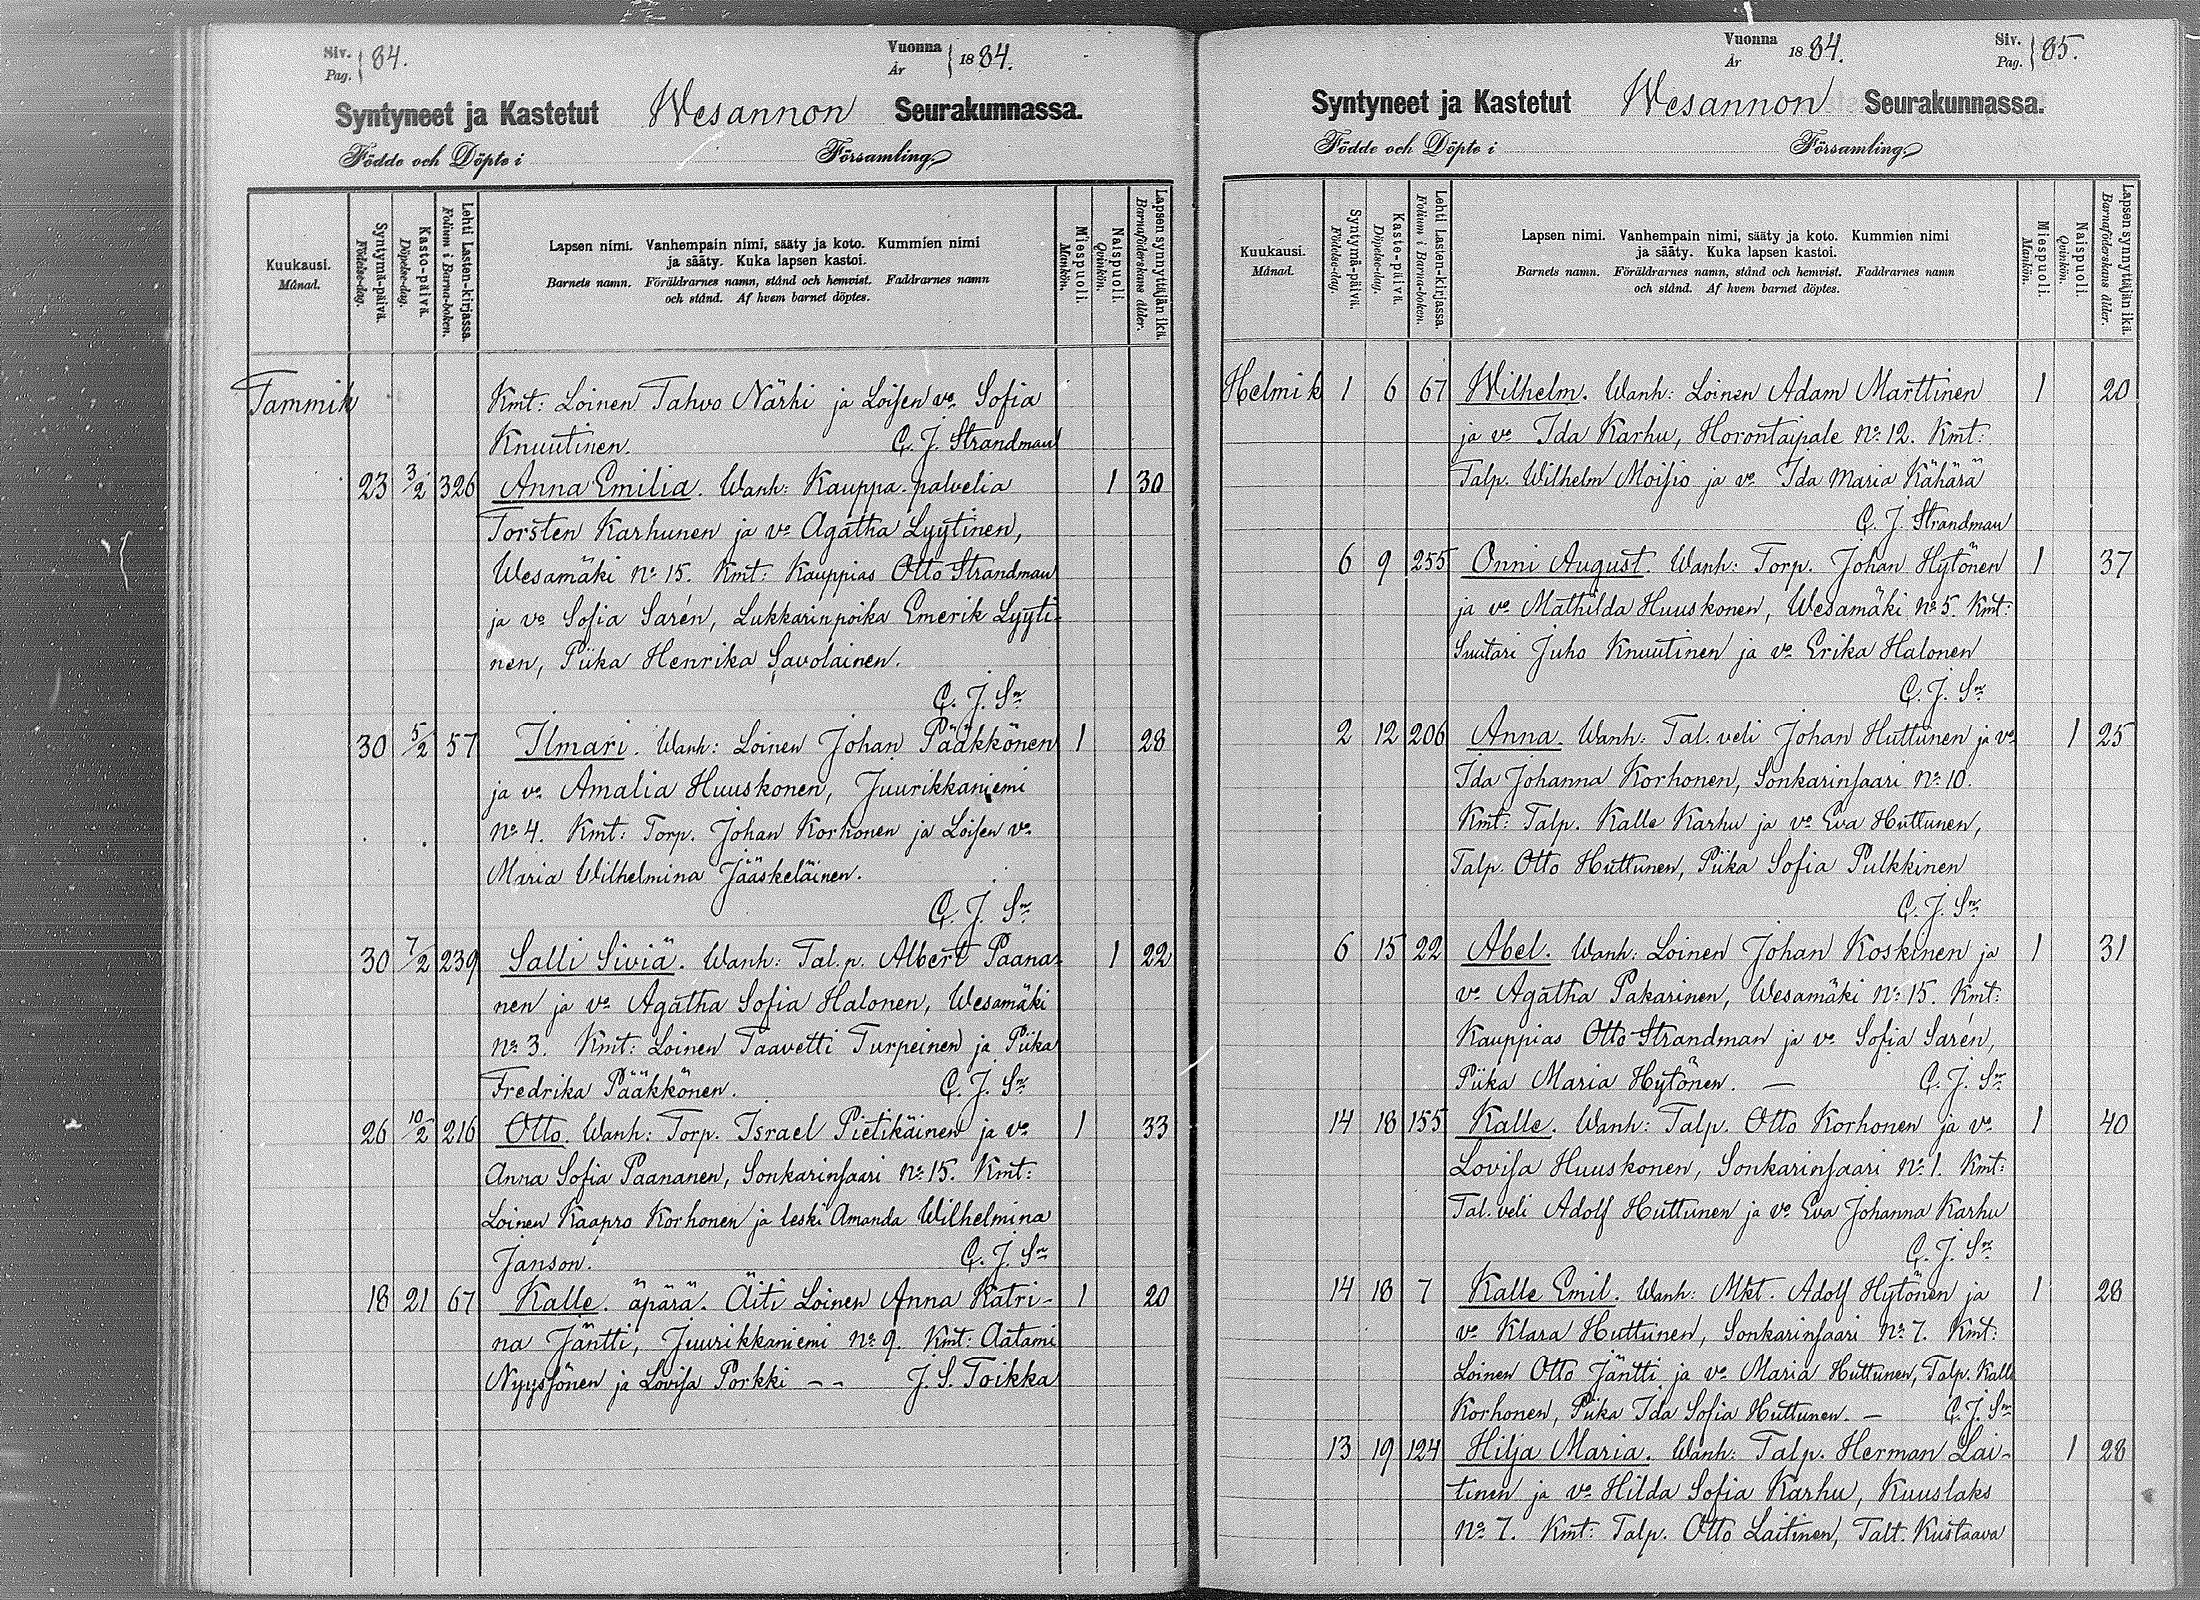 Siv.
Pag. 84.
Vuonna
År 1884.
Syntyneet ja Kastetut Wesannon Seurakunnassa.
Födde och Döpte i Församling.
Kuukausi.
Månad.
Syntymä-päivä.
Födelse-dag.
Kasto-päivä.
Döpelse-dag.
Lehti Lasten-kirjassa.
Folium i Barna-boken.
Lapsen nimi. Vanhempain nimi, sääty ja koto. Kummien nimi
ja sääty. Kuka lapsen kastoi.
Barnets namn. Föräldrarnes namn, stånd och hemvist. Faddrarnes namn
och stånd. Af hvem barnet döptes.
Miespuoli.
Mankön.
Naispuoli.
Qvinkön.
Lapsen synnyttäjän ikä.
Barnaföderskans ålder.
Tammik Kmt: Loinen Tahvo Närhi ja Loisen vo Sofia
Knuutinen. C. J. Strandman
23 3/2 326 Anna Emilia. Wanh: Kauppa-palvelia 1 30
Torsten Karhunen ja vo Agatha Lyytinen,
Wesamäki No 15. Kmt: Kauppias Otto Strandman
ja vo Sofia Sarén, Lukkarinpoika Emerik Lyyti-
nen, Piika Henrika Savolainen.
C. J. Sn
30 5/2 57 Ilmari. Wanh: Loinen Johan Pääkkönen 1 28
ja vo Amalia Huuskonen, Juurikkaniemi
No 4. Kmt: Torp. Johan Korhonen ja Loisen vo
Maria Wilhelmina Jääskeläinen.
C. J. Sn
30 7/2 239 Salli Siviä. Wanh: Tal. p. Albert Paana- 1 22
nen ja vo Agatha Sofia Halonen, Wesamäki
No 3. Kmt: Loinen Taavetti Turpeinen ja Piika
Fredrika Pääkkönen. C. J. Sn
26 10/2 216 Otto. Wanh: Torp. Israel Pietikäinen ja vo 1 33
Anna Sofia Paananen, Sonkarinsaari No 15. Kmt:
Loinen Kaapro Korhonen ja leski Amanda Wilhelmina
Janson. C. J. Sn
18 21 67 Kalle. äpärä. Äiti Loinen Anna Katri- 1 20
na Jäntti, Juurikkaniemi No 9. Kmt: Aatami
Nyyssönen ja Lovisa Porkki -- J. S. Toikka
Vuonna
År 1884.
Siv.
Pag. 85.
Syntyneet ja Kastetut Wesannon Seurakunnassa.
Födde och Döpte i Församling.
Kuukausi.
Månad.
Syntymä-päivä.
Födelse-dag.
Kaste-päivä.
Döpelse-dag.
Lehti Lasten-kirjassa.
Folium i Barna-boken.
Lapsen nimi. Vanhempain nimi, sääty ja koto. Kummien nimi
ja sääty. Kuka lapsen kastoi.
Barnets namn. Föräldrarnes namn, stånd och hemvist. Faddrarnes namn
och stånd. Af hvem barnet döptes.
Miespuoli.
Mankön.
Naispuoli.
Qvinkön.
Lapsen synnyttäjän ikä.
Barnaföderskans ålder.
Helmik 1 6 67 Wilhelm. Wanh: Loinen Adam Marttinen 1 20
ja vo Ida Karhu, Horontaipale No 12. Kmt:
Talp. Wilhelm Moisio ja vo Ida Maria Kähärä
C. J. Strandman
6 9 255 Onni August. Wanh: Torp. Johan Hytönen 1 37
ja vo Mathilda Huuskonen, Wesamäki No 5. Kmt:
Suutari Juho Knuutinen ja vo Erika Halonen
C. J. Sn
2 12 206 Anna. Wanh: Tal. veli Johan Huttunen ja vo 1 25
Ida Johanna Korhonen, Sonkarinsaari No 10.
Kmt: Talp. Kalle Karhu ja vo Eva Huttunen,
Talp. Otto Huttunen, Piika Sofia Pulkkinen
C. J. Sn
6 15 22 Abel. Wanh: Loinen Johan Koskinen ja 1 31
vo Agatha Pakarinen, Wesamäki No 15. Kmt:
Kauppias Otto Strandman ja vo Sofia Sarén,
Piika Maria Hytönen. — C. J. Sn
14 18 155 Kalle. Wanh: Talp. Otto Korhonen ja vo 1 40
Lovisa Huuskonen, Sonkarinsaari No 1. Kmt:
Tal. veli Adolf Huttunen ja vo Eva Johanna Karhu
C. J. Sn
14 18 7 Kalle Emil. Wanh: Mkt. Adolf Hytönen ja 1 28
vo Klara Huttunen, Sonkarinsaari No 7. Kmt:
Loinen Otto Jäntti ja vo Maria Huttunen, Talp. Kalle
Korhonen, Piika Ida Sofia Huttunen. — C. J. Sn
13 19 124 Hilja Maria. Wanh: Talp. Herman Lai- 1 28
tinen ja vo Hilda Sofia Karhu, Kuuslaks
No 7. Kmt: Talp. Otto Laitinen, Talt. Kustaava